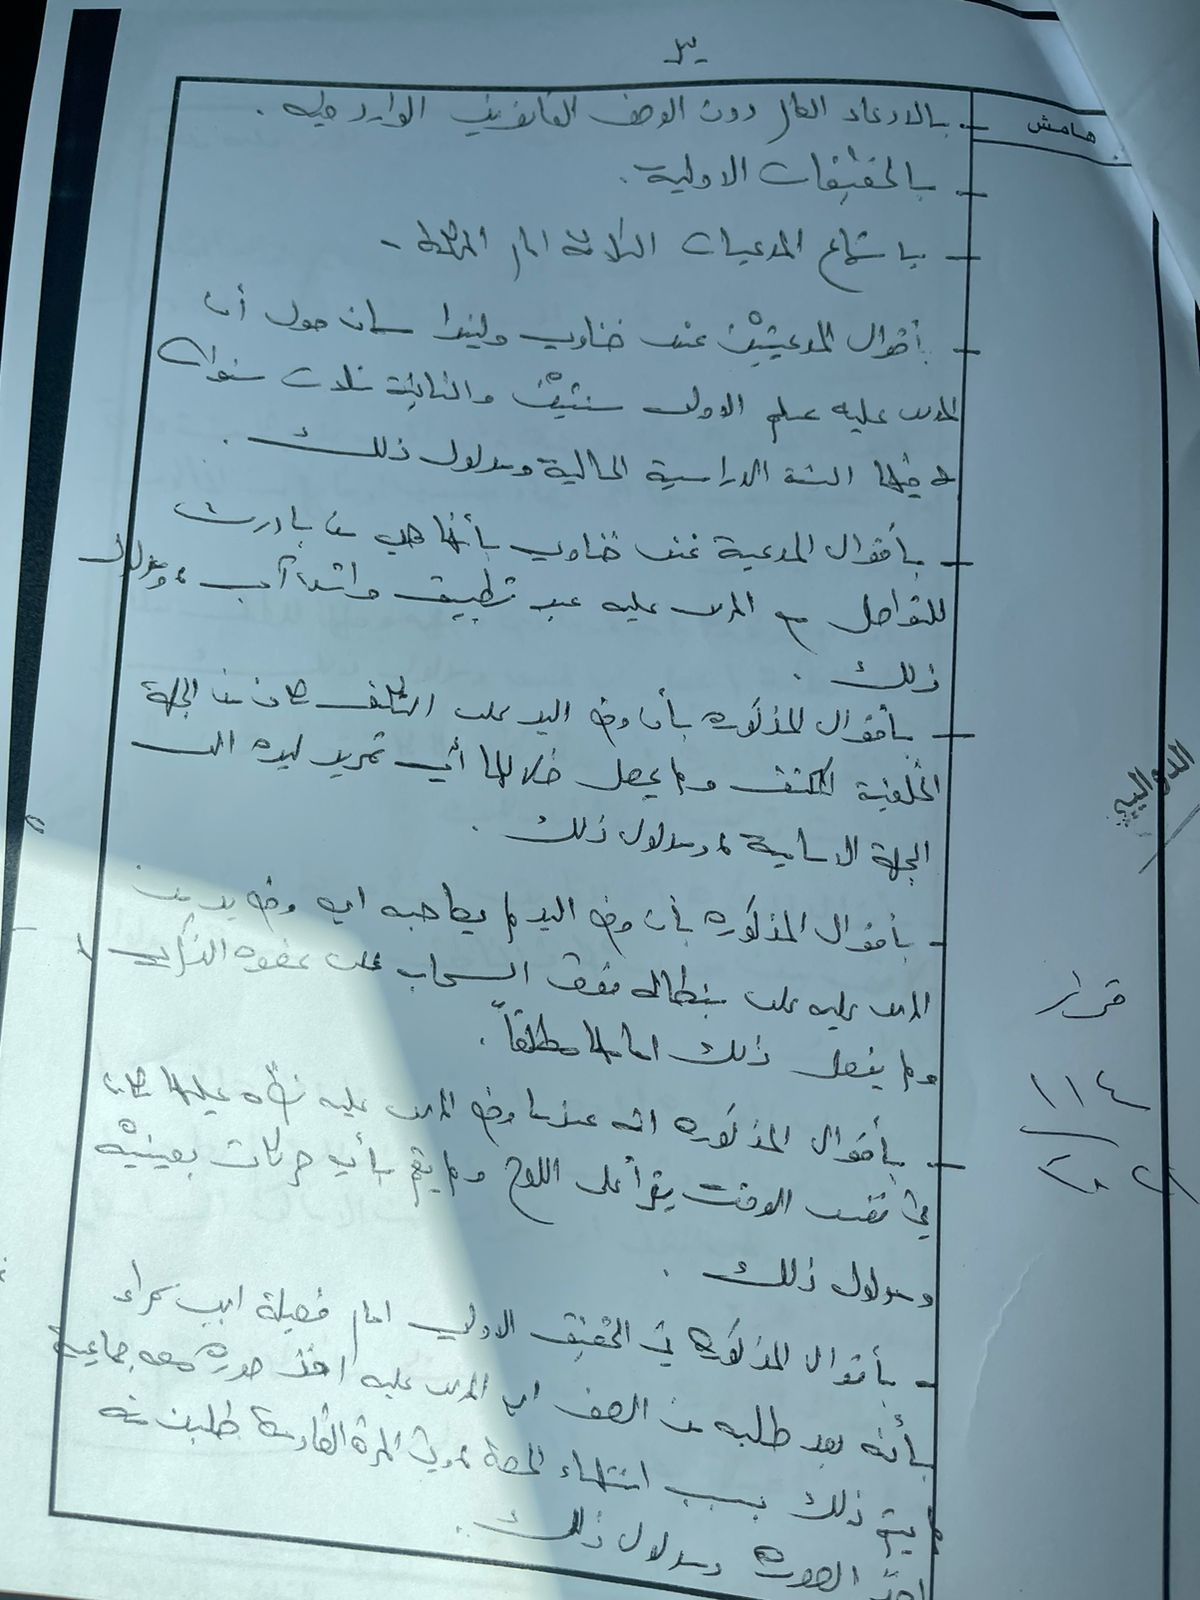 ٣
هامش
- بالادعاء العام دون الوصف القانوني الوارد فيه .
- بالتحقيقات الاولية .
- باستماع المدعيات الثلاثة امام المحكمة -
- بأقوال المدعيتين غنى خضاوي وليندا حول أن
المدعى عليه علم الاولى سنتين والثانية ثلاث سنوات
بما فيها السنة الدراسية الحالية ومدلول ذلك .
- بأقوال المدعية غنى خضاوي بأنها هي من بادرت
للتواصل مع المدعى عليه عبر تطبيق واتس آب ، ومدلول
ذلك .
- بأقوال المذكوره بأن وضع اليد على الكتف كان من الجهة
الخلفية للكتف ولم يحصل خلالها أي تمرير ليده الى
الجهة الامامية ، ومدلول ذلك .
- بأقوال المذكوره بأن وضع اليد لم يصاحبه اي وضع يد من
المدعى عليه على بنطاله فوق السحاب على عضوه الذكري
ولم يفعل ذلك امامها مطلقاً .
- بأقوال المذكوره انه عندما وضع المدعى عليه يده عليها كان
في نفس الوقت يقرأ على اللوح ولم يقم بأي حركات بعينيه
ومدلول ذلك .
- بأقوال المذكوره في التحقيق الاولي امام فصيلة
بأنه بعد طلبه من الصف اي المدعى عليه اخذ صوره معه جماعية
لم يتم ذلك بسبب انتهاء الحصة وفي المرة القادمة طلبن منه
اخذ الصوره ومدلول ذلك .
قرار
١١٤